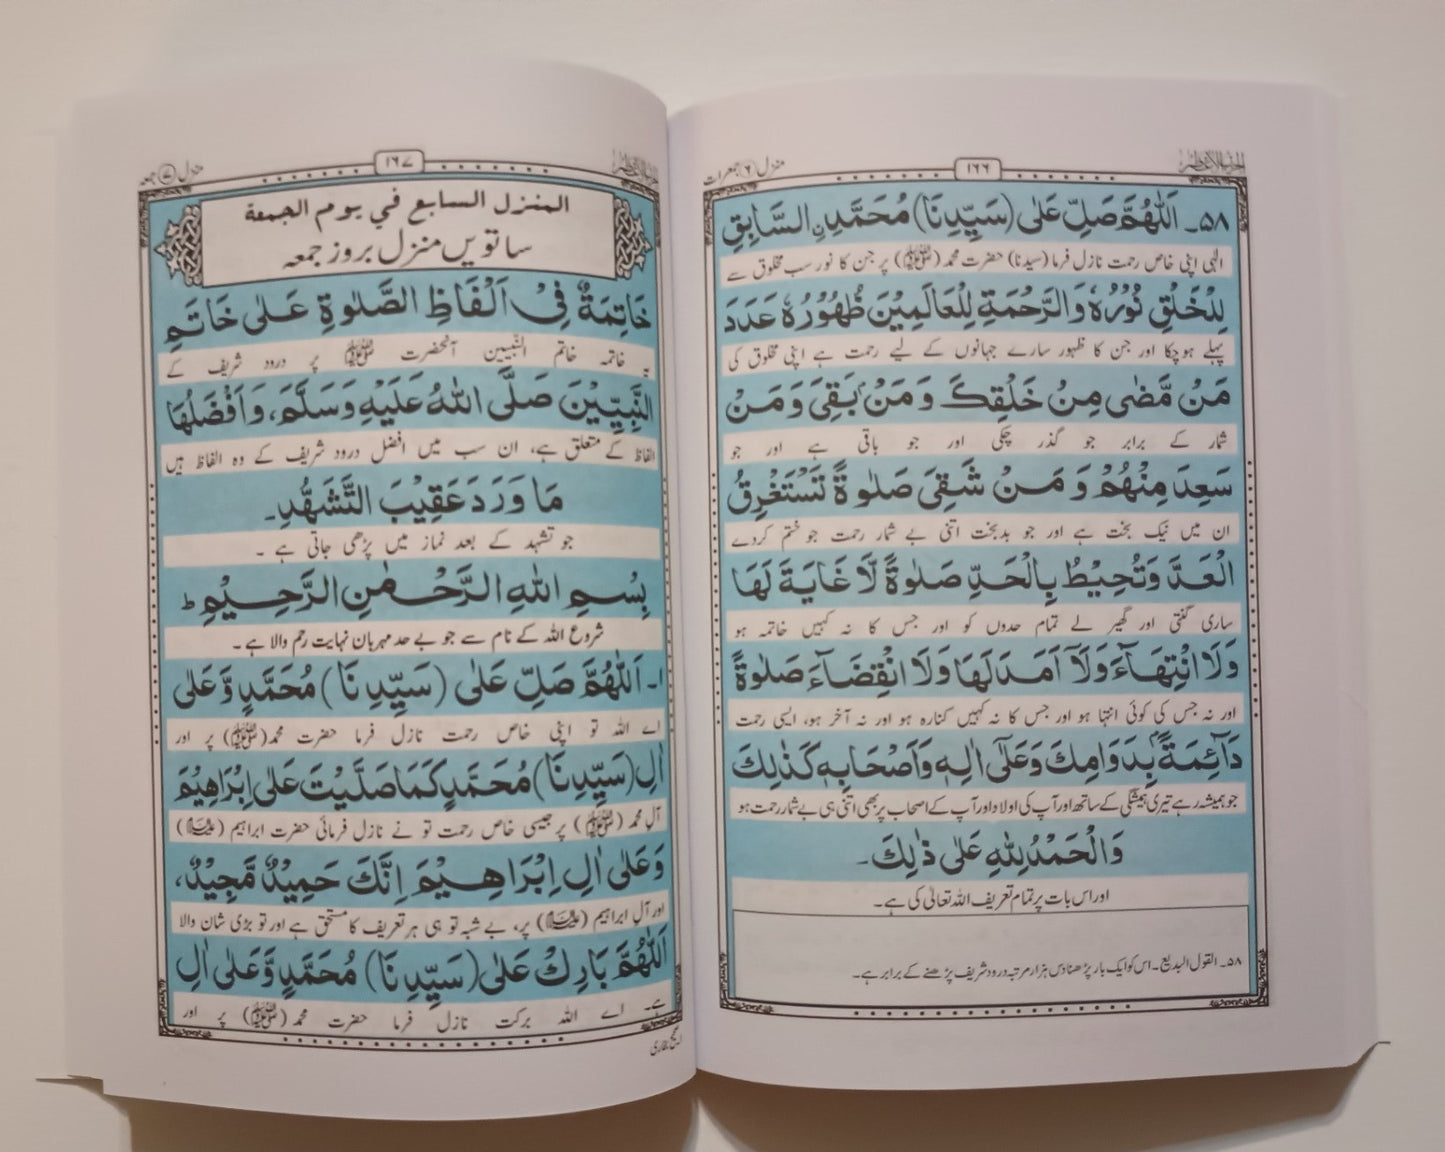 منزل ۶ جمعرات
۱۶۶
۵۸۔ اَللّٰهُمَّ صَلِّ عَلٰى (سَيِّدِنَا) مُحَمَّدِ نِ السَّابِقِ
الٰہی اپنی خاص رحمت نازل فرما (سیدنا) حضرت محمد (ﷺ) پر جن کا نور سب مخلوق سے
لِلْخَلْقِ نُوْرُهٗ وَالرَّحْمَةِ لِلْعَالَمِيْنَ ظُهُوْرُهٗ عَدَدَ
پہلے ہو چکا اور جن کا ظہور سارے جہانوں کے لیے رحمت ہے اپنی مخلوق کی
مَنْ مَّضٰى مِنْ خَلْقِكَ وَ مَنْۢ بَقِيَ وَ مَنْ
شمار کے برابر جو گذر چکی اور جو باقی ہے اور جو
سَعِدَ مِنْهُمْ وَ مَنْ شَقِيَ صَلٰوةً تَسْتَغْرِقُ
ان میں نیک بخت ہے اور جو بدبخت اتنی بے شمار رحمت جو ختم کردے
الْعَدَّ وَتُحِيْطُ بِالْحَدِّ صَلٰوةً لَّا غَايَةَ لَهَا
ساری گنتی اور گھیر لے تمام حدوں کو اور جس کا نہ کہیں خاتمہ ہو
وَلَا انْتِهَآءَ وَلَآ اَمَدَ لَهَا وَلَا انْقِضَآءَ صَلٰوةً
اور نہ جس کی کوئی انتہا ہو اور جس کا نہ کہیں کنارہ ہو اور نہ آخر ہو، ایسی رحمت
دَآئِمَةًۢ بِدَوَامِكَ وَعَلٰٓى اٰلِهٖ وَاَصْحَابِهٖ كَذٰلِكَ
جو ہمیشہ رہے تیری ہمیشگی کے ساتھ اور آپ کی اولاد اور آپ کے اصحاب پر بھی اتنی ہی بے شمار رحمت ہو
وَالْحَمْدُ لِلّٰهِ عَلٰى ذٰلِكَ۔
اور اس بات پر تمام تعریف اللہ تعالٰی کی ہے۔
۵۸۔ القول البدیع۔ اس کو ایک بار پڑھنا دس ہزار مرتبہ درود شریف پڑھنے کے برابر ہے۔
منزل ۷ جمعہ
۱۶۷
المنزل السابع في يوم الجمعة
ساتویں منزل بروز جمعہ
خَاتِمَةٌ فِيْ اَلْفَاظِ الصَّلٰوةِ عَلٰى خَاتَمِ
یہ خاتمہ خاتم النّبیین آنحضرت ﷺ پر درود شریف کے
النَّبِيِّيْنَ صَلَّى اللهُ عَلَيْهِ وَسَلَّمَ، وَاَفْضَلُهَا
الفاظ کے متعلق ہے، ان سب میں افضل درود شریف کے وہ الفاظ ہیں
مَا وَرَدَ عَقِيْبَ التَّشَهُّدِ۔
جو تشہد کے بعد نماز میں پڑھی جاتی ہے ۔
بِسْمِ اللهِ الرَّحْمٰنِ الرَّحِيْمِ ط
شروع اللہ کے نام سے جو بے حد مہربان نہایت رحم والا ہے ۔
۱۔ اَللّٰهُمَّ صَلِّ عَلٰى (سَيِّدِنَا) مُحَمَّدٍ وَّعَلٰى
اے اللہ تو اپنی خاص رحمت نازل فرما حضرت محمد (ﷺ) پر اور
اٰلِ (سَيِّدِنَا) مُحَمَّدٍ كَمَا صَلَّيْتَ عَلٰى اِبْرَاهِيْمَ
آلِ محمد (ﷺ) پر جیسی خاص رحمت تو نے نازل فرمائی حضرت ابراہیم (علیہ السلام)
وَعَلٰى اٰلِ اِبْرَاهِيْمَ اِنَّكَ حَمِيْدٌ مَّجِيْدٌ،
اور آلِ ابراہیم (علیہ السلام) پر، بے شبہ تو ہی ہر تعریف کا مستحق ہے اور تو بڑی شان والا
اَللّٰهُمَّ بَارِكْ عَلٰى (سَيِّدِنَا) مُحَمَّدٍ وَّعَلٰى اٰلِ
ہے۔ اے اللہ برکت نازل فرما حضرت محمد (ﷺ) پر اور
صحیح بخاری